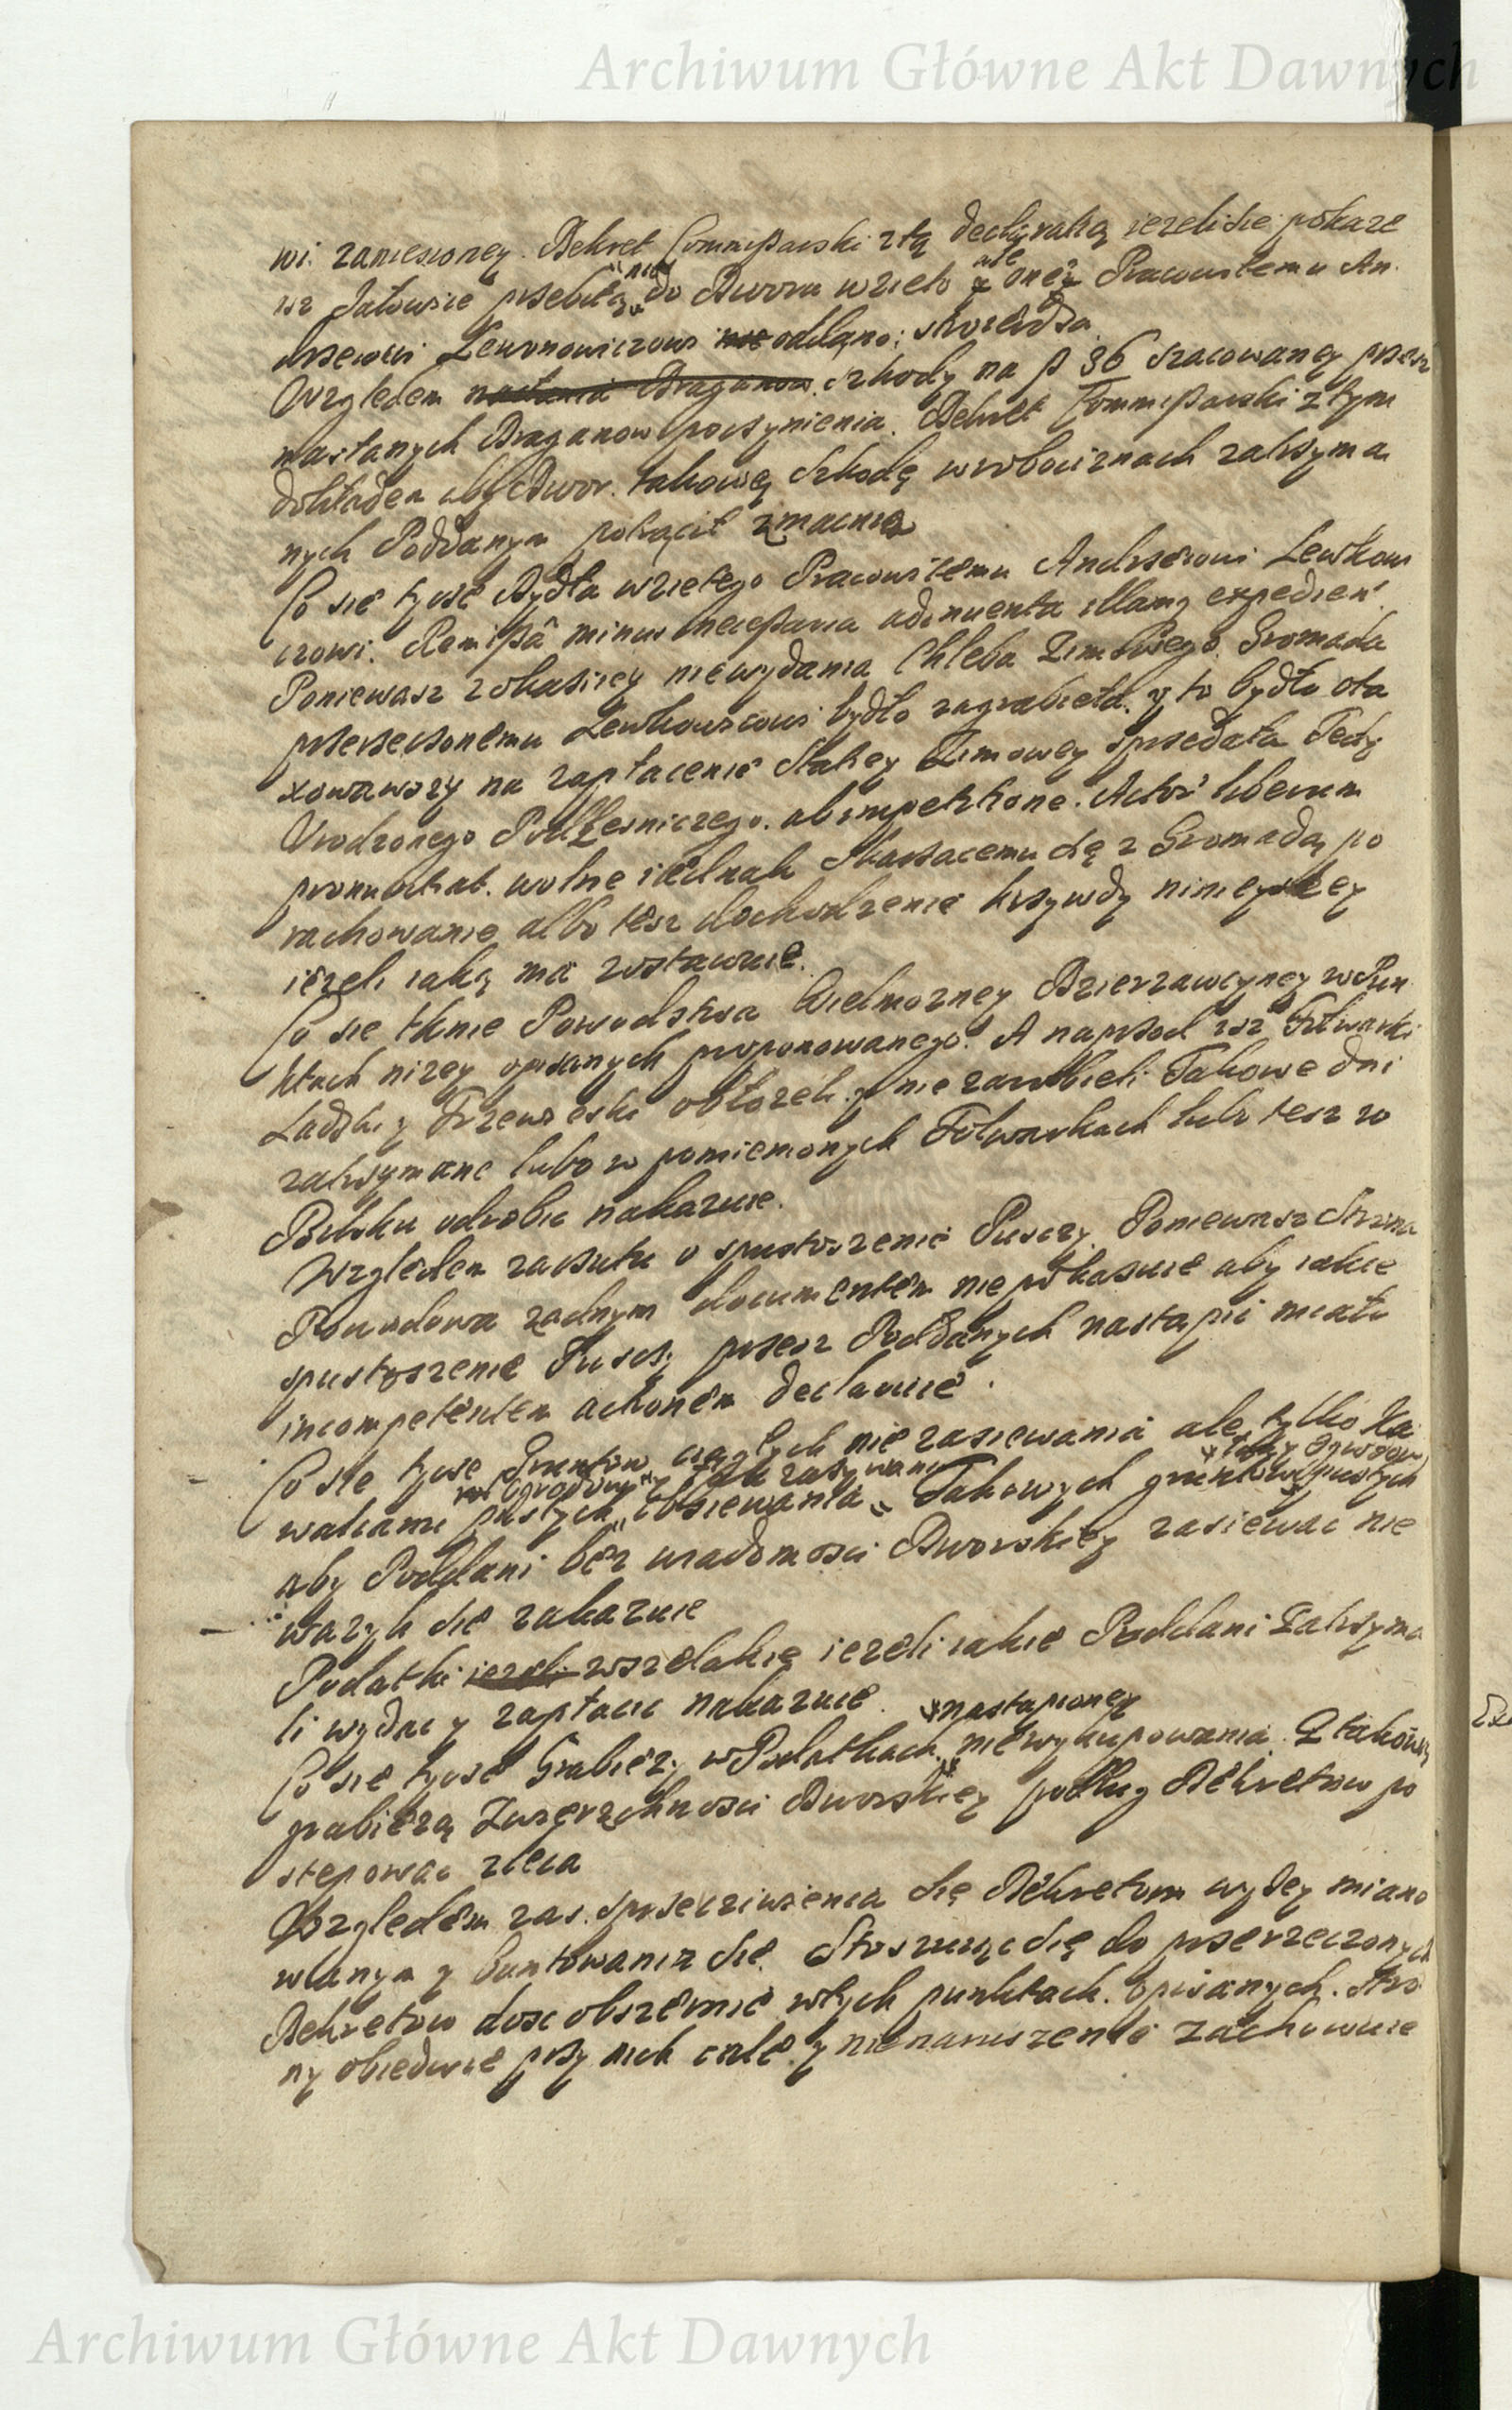 Archiwum Główne Akt Dawnych
wi zaniesioney. Dekret Commissarski z tą declaratią iezeli się pokaze
isz Jałowice przebitą do Dworu wzięto ale oney Pracowitemu An
drzeiowi Lewonowiczowi nie oddano; stwierdza
Względem nasłania Draganow Szkody na p 36 szacowaney przez
nasłanych Draganow poczynienia. Dekret Commissarski z tym
dokładem aby Dwor takową Szkodę w robociznach zatrzyma
nych Poddanym potrącił zmacnia
Co się tycze Bydła wziętego Pracowitemu Andrzeiowi Lewkowi
czowi. Remissa minus necessaria adinventa illamq expedien
Poniewasz z okaziey niewydania Chleba Zimowego Gromada
przerzeczonemu Lewkowiczowi bydło zagrabieła y to bydło ota
xowawszy na zapłacenie Stacyey Zimowey sprzedała Tedy
Urodzonego Podlesniczego ab impetitione Actor liberum
pronuntiat. wolne iednak Skarzacemu się z Gromadą po
rachowanie albo tesz dochodzenie krzywdy ninieyszey
iezeli iaką ma zostawuie.
Co się tknie Powodztwa Wielmozney Dzierzawczyney w Pun
ktach nizey opisanych proponowanego. A naprzod isz Folwarki
Ladzki y Trzewieski obłozeli y nie zarobieli Takowe dni
zatrzymane lubo w pomienionych Folwarkach lub tesz w
Bilsku odrobic nakazuie.
Względem zarzutu o spustoszenie Puszczy. Poniewasz Strona
Powodowa zadnym documentem nie pokazuie aby iakie
spustoszenie Puszczy przez Poddanych nastąpić miało
incompetentem actionem declaruie.
Co się tycze Gruntow ciągłych nie zasiewania ale tylko Ka
wałcami pustych obsiewania Takowych gruntow pustych
aby Poddani bez wiadomosci Dworskiey zasiewac nie
wazyli się zakazuie
Podatki iezeli wszelakie iezeli iakie Poddani Zatrzyma
li wydac y zapłacic nakazuie. nastąpioney
Co się tycze Grabiezy w Podatkach niewykupowania Z takową
grabiezą Zwierzchnosci Dworskiey podług Dekretow po
stępowac zleca
Względem zas sprzeciwienia się Dekretom wyzey miano
wanym y buntowania się. Stosuiąc się do przerzeczonych
Dekretow dosc obszernie w tych punktach opisanych. Stro
ny obiedwie przy nich cale y nienaruszenie zachowuie
Archiwum Główne Akt Dawnych